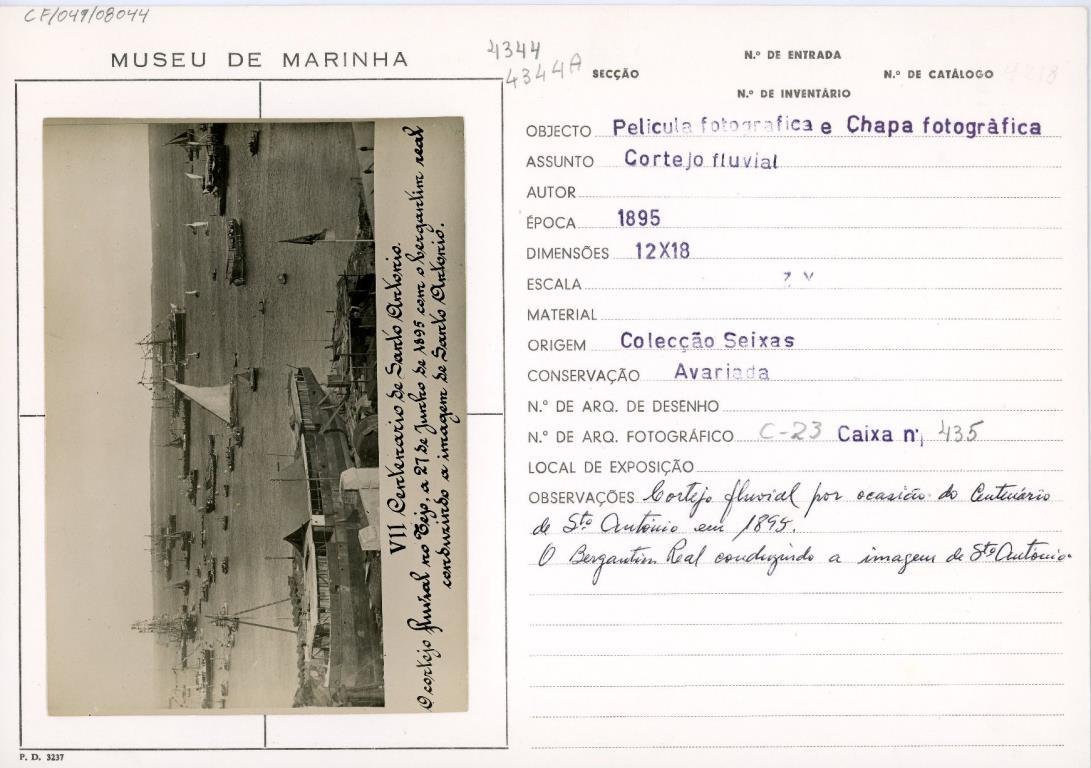 CF/049/08044
MUSEU DE MARINHA
4344
4344A
SECÇÃO
N.º DE ENTRADA
N.º DE CATÁLOGO
N.º DE INVENTÁRIO
OBJECTO Pelicula fotografica e Chapa fotogràfica
ASSUNTO Cortejo fluvial
AUTOR
ÉPOCA 1895
DIMENSÕES 12X18
ESCALA
MATERIAL
ORIGEM Colecção Seixas
CONSERVAÇÃO Avariada
N.º DE ARQ. DE DESENHO
N.º DE ARQ. FOTOGRÁFICO C-23 Caixa nº 435
LOCAL DE EXPOSIÇÃO
OBSERVAÇÕES Cortejo fluvial por ocasião do Centenário
de Sto António em 1895.
O Bergantim Real conduzindo a imagem de Sto António.
VII Centenario de Santo Antonio.
O cortejo fluvial no Tejo, a 27 de Junho de 1895 com o bergantim real
conduzindo a imagem de Santo Antonio.
P. D. 3237